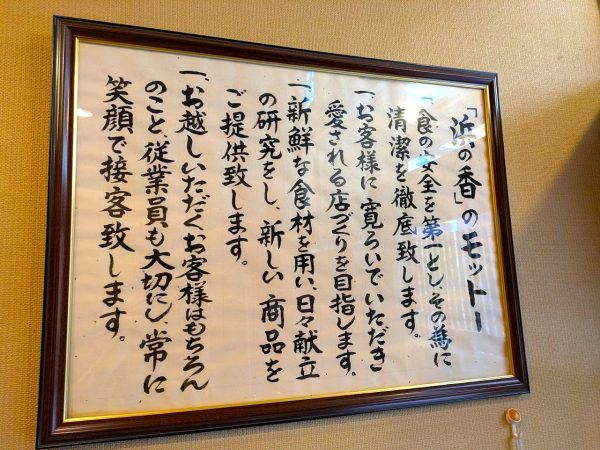 「浜の香」のモットー
一、食の安全を第一とし、その為に
清潔を徹底致します。
一、お客様に寛ろいでいただき
愛される店づくりを目指します。
一、新鮮な食材を用い、日々献立
の研究をし、新しい商品を
ご提供致します。
一、お越しいただくお客様はもちろん
のこと、従業員も大切にし、常に
笑顔で接客致します。